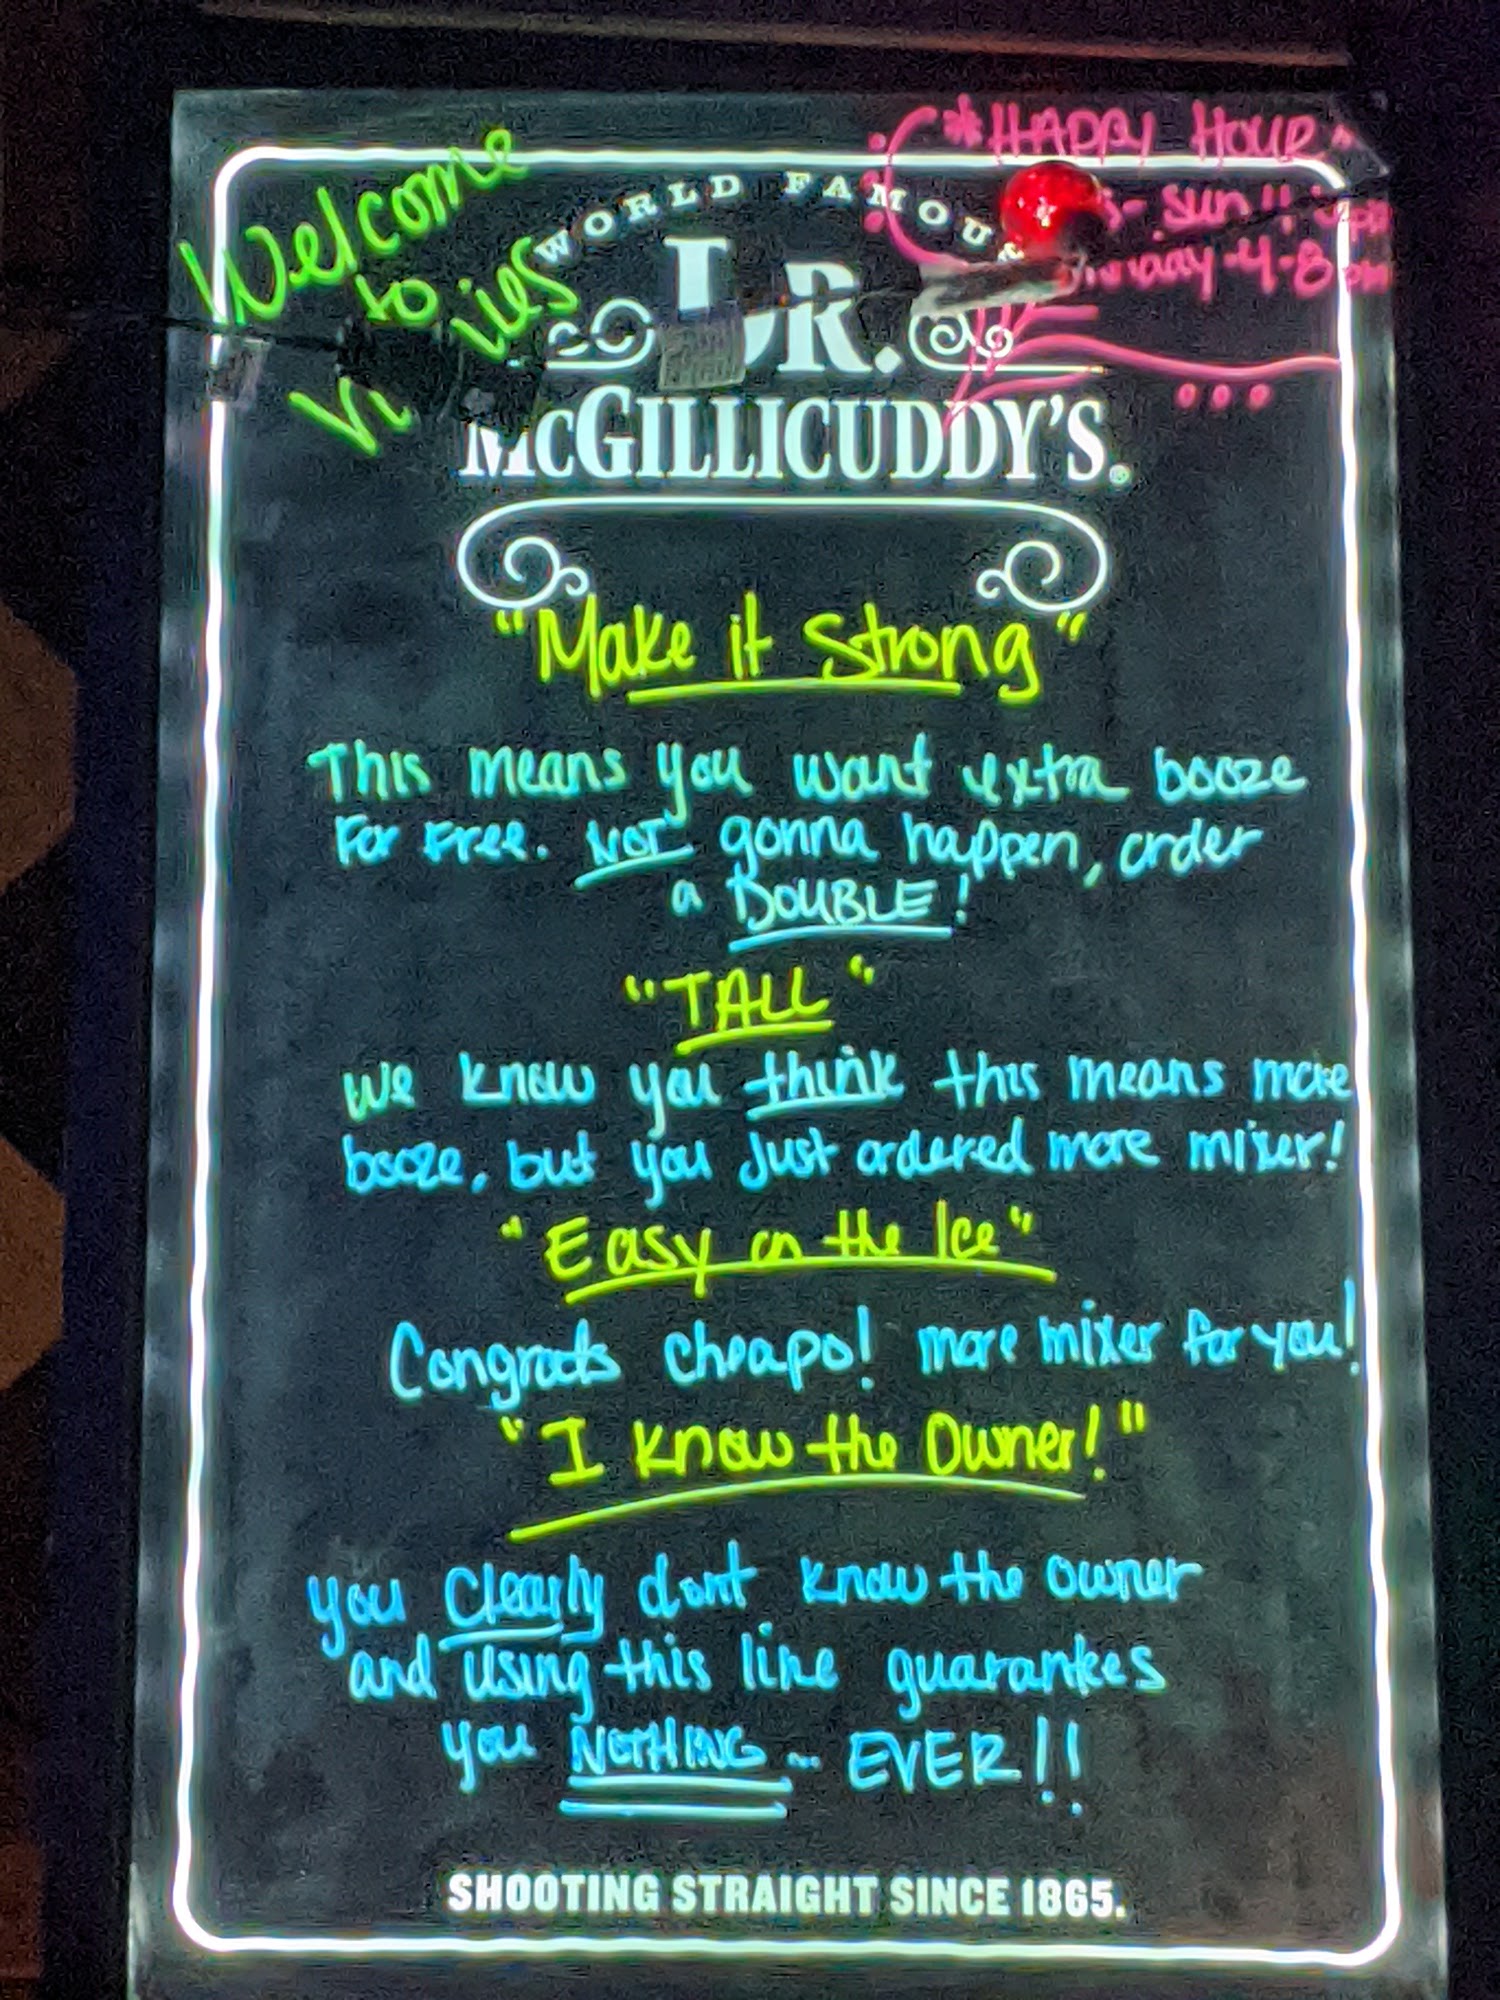 Welcome
to
*HAPPY HOUR*
Sun!!
4-8pm
WORLD FAMOUS
DR.
McGILLICUDDY'S.
"Make it Strong"
This means you want extra booze
For Free. NOT gonna happen, order
a DOUBLE!
"TALL"
We know you think this means more
booze, but you just ordered more mixer!
"Easy on the Ice"
Congrats cheapo! more mixer for you!
"I know the Owner!"
you Clearly dont know the owner
and using this line guarantees
you NOTHING... EVER!!
SHOOTING STRAIGHT SINCE 1865.